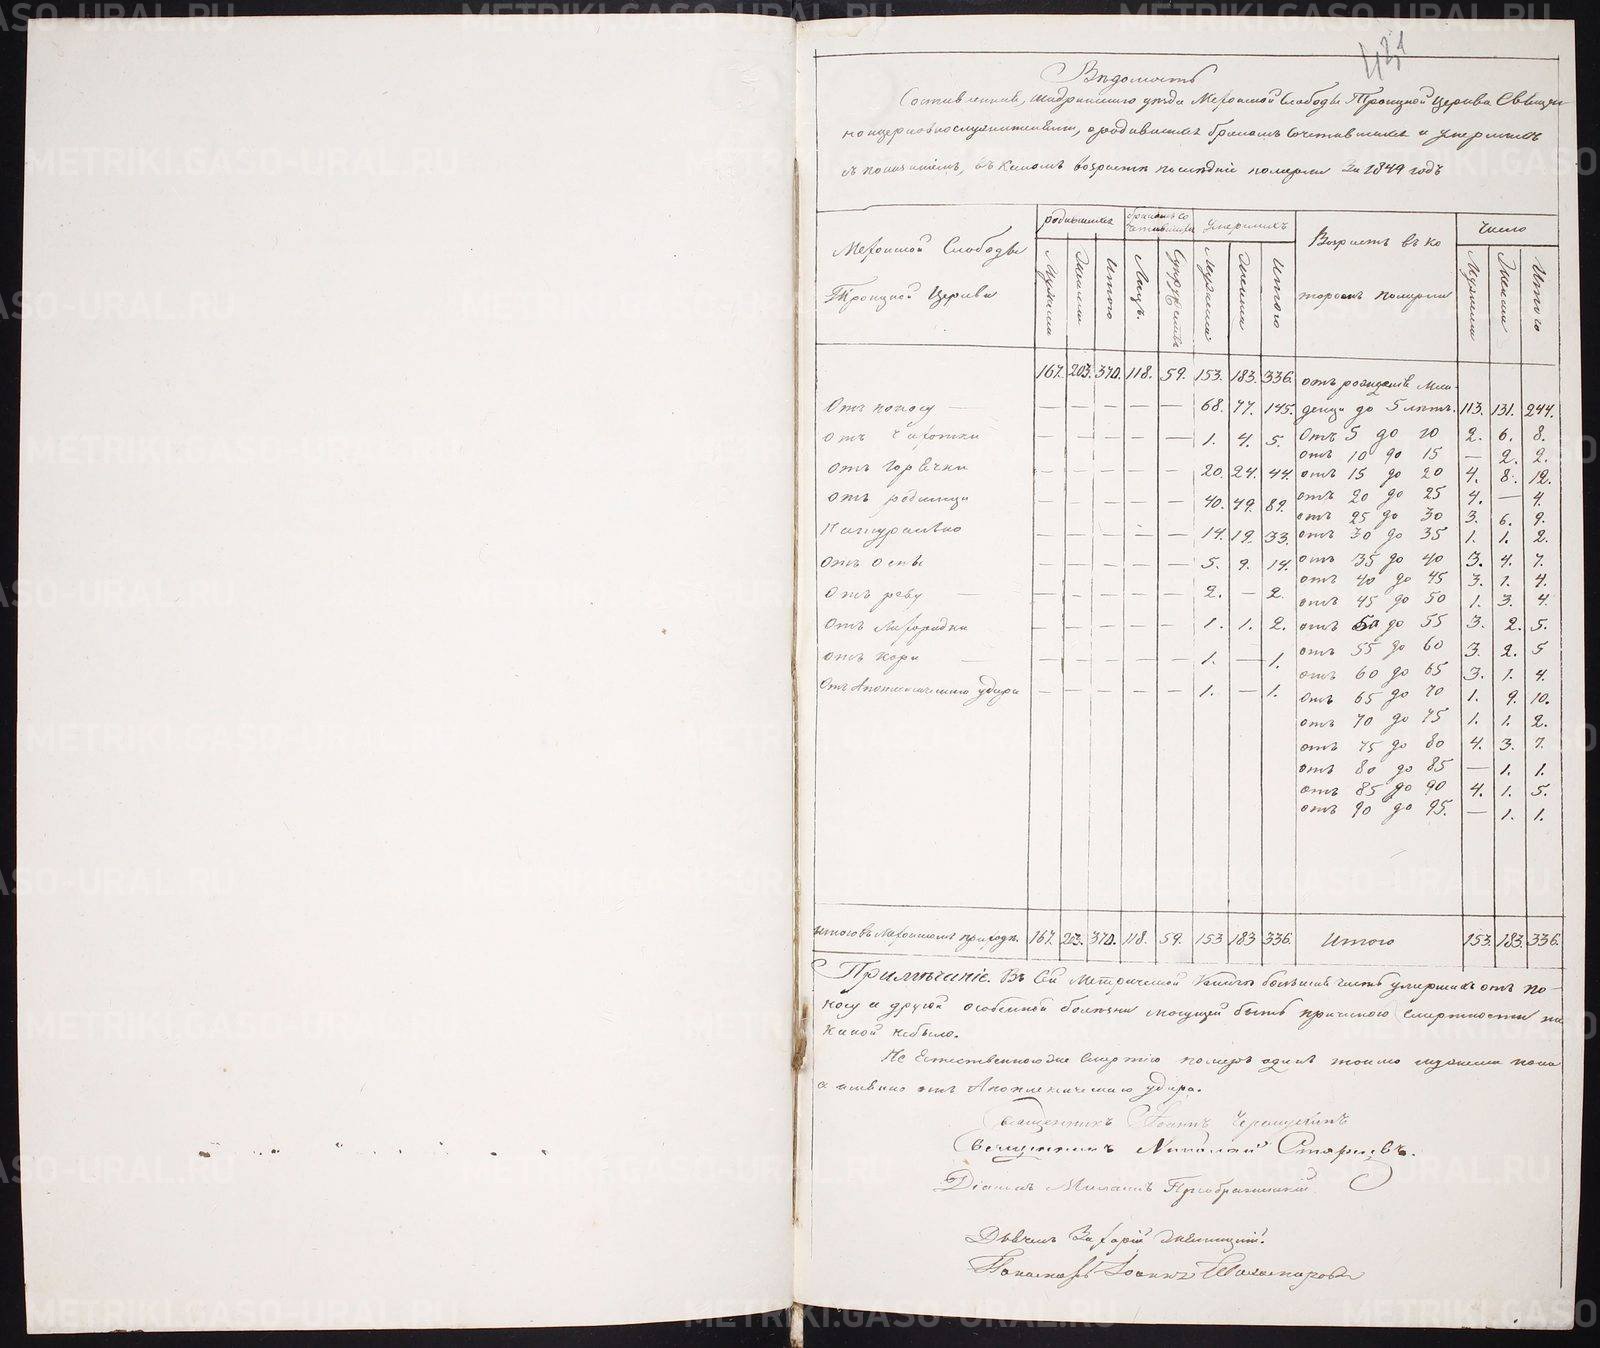 421
Вѣдомость
Составленная, Шадринскаго уѣзда Мехонской Слободы Троицкой Церкви Священ-
но церковнослужителями, о родившихся бракомъ сочетавшихся и умершихъ
съ показаніемъ, въ какомъ возрастѣ послѣдніе померли За 1849 годъ
Мехонской Слободы
Троицкой Церкви
родившихся
бракомъ со
четавшихся
умершихъ
Возрастъ въ ко
торомъ померли
Число
Мужеска
Женска
Итого
Лицъ.
Супружествъ
Мужеска
Женска
Итого
Мужеска
Женска
Итого
167. 203. 370. 118. 59. 153. 183. 336. отъ рожденія Мла-
Отъ поносу — — — — — 68. 77. 145. денца до 5 лѣтъ. 113. 131. 244.
Отъ Чахотки — — — — — 1. 4. 5. Отъ 5 до 10 2. 6. 8.
отъ 10 до 15 — 2. 2.
Отъ горячки — — — — — 20. 24. 44. отъ 15 до 20 4. 8. 12.
Отъ родимца — — — — — 40. 49. 89. отъ 20 до 25 4. — 4.
отъ 25 до 30 3. 6. 9.
Натурально — — — — — 14. 19. 33. отъ 30 до 35 1. 1. 2.
Отъ оспы — — — — — 5. 9. 14. отъ 35 до 40 3. 4. 7.
отъ 40 до 45 3. 1. 4.
Отъ реву — — — — — 2. — 2. отъ 45 до 50 1. 3. 4.
Отъ Лихорадки — — — — — 1. 1. 2. отъ 50 до 55 3. 2. 5.
отъ кори — — — — — 1. — 1. отъ 55 до 60 3. 2. 5
отъ 60 до 65 3. 1. 4.
Отъ Апоплексическаго удара — — — — — 1. — 1. отъ 65 до 70 1. 9. 10.
отъ 70 до 75 1. 1. 2.
отъ 75 до 80 4. 3. 7.
отъ 80 до 85 — 1. 1.
отъ 85 до 90 4. 1. 5.
отъ 90 до 95. — 1. 1.
Итого въ Мехонскомъ приходѣ. 167. 203. 370. 118. 59. 153 183 336. Итого 153. 183. 336.
Примѣчаніе. Въ Сей Метрической Книгѣ большая часть умершихъ отъ по-
носу а другой особенной болѣзни могущей быть причиною смертности ни
какой небыло.
Не Естественною же смертію померъ одинъ токмо мужеска пола
а имянно отъ Апоплексическаго удара.
Священникъ Іоаннъ Черемухинъ
Священникъ Николай Старцевъ.
Діаконъ Михаилъ Преображенскій
Дьячекъ Захарій
Пономарь Іоаннъ
METRIKI.GASO-URAL.RU